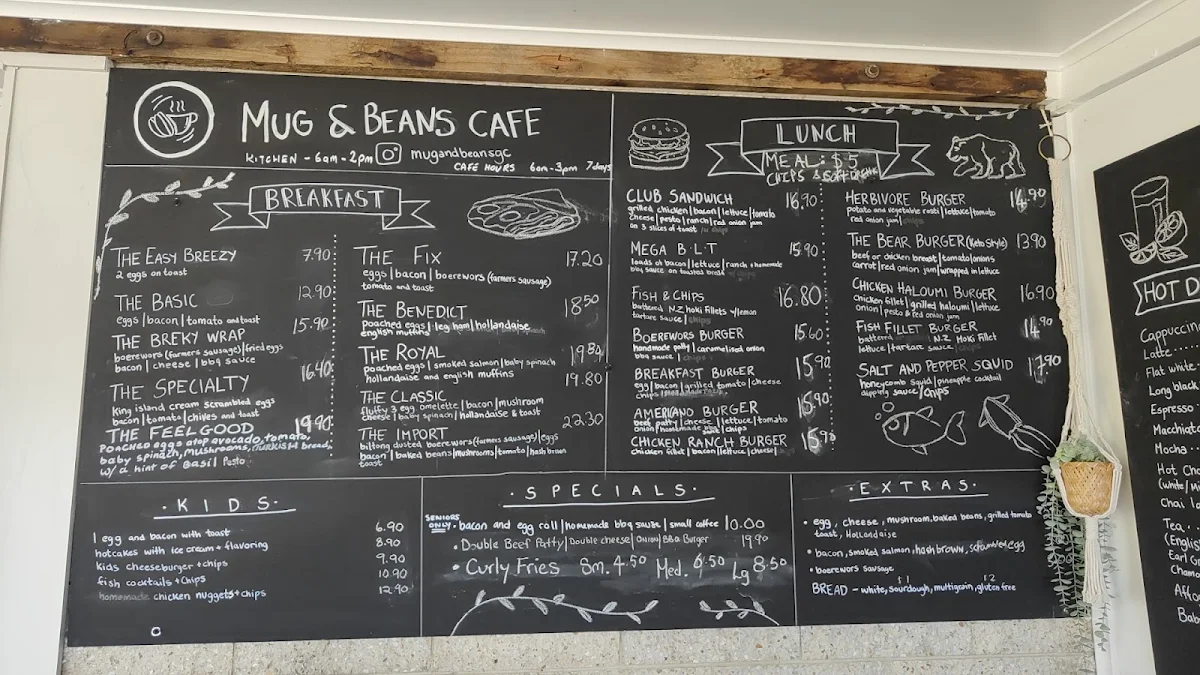 MUG & BEANS CAFE
KITCHEN - 6am - 2pm mugandbeansgc
CAFE HOURS 6am-3pm 7days
BREAKFAST
THE EASY BREEZY 7.90
2 eggs on toast
THE BASIC 12.90
eggs | bacon | tomato and toast
THE BREKY WRAP 15.90
boerewors (farmers sausage) | fried eggs
bacon | cheese | bbq sauce
THE SPECIALTY 16.40
King island cream scrambled eggs
bacon | tomato | chives and toast
THE FEELGOOD 19.90
Poached eggs atop avocado, tomato,
baby spinach, mushrooms, turkish bread
w/ a hint of Basil Pesto
THE FIX 17.20
eggs | bacon | boerewors (farmers sausage)
tomato and toast
THE BENEDICT 18.50
poached eggs | leg ham | hollandaise
english muffins
THE ROYAL 19.80
poached eggs | smoked salmon | baby spinach
hollandaise and english muffins
THE CLASSIC 19.80
fluffy 3 egg omelette | bacon | mushroom
cheese | baby spinach | hollandaise & toast
THE IMPORT 22.30
biltong dusted boerewors (farmers sausage) | eggs
bacon | baked beans | mushrooms | tomato | hash brown
toast
LUNCH
MEAL: $5
CHIPS & SOFT DRINK
CLUB SANDWICH 16.90
grilled chicken | bacon | lettuce | tomato
cheese | pesto | ranch | red onion jam
on 3 slices of toast
MEGA B.L.T 15.90
loads of bacon | lettuce | ranch + homemade
bbq sauce on toasted bread
FISH & CHIPS 16.80
battered N.Z hoki fillets w/lemon
tartare sauce | chips
BOEREWORS BURGER 15.60
handmade patty | caramelised onion
bbq sauce | chips
BREAKFAST BURGER 15.90
egg | bacon | grilled tomato | cheese
AMERICANO BURGER 15.90
beef patty | cheese | lettuce | tomato
onion | homemade sauce | chips
CHICKEN RANCH BURGER 15.90
chicken fillet | bacon | lettuce | cheese |
HERBIVORE BURGER 14.90
potato and vegetable rosti | lettuce | tomato
red onion jam |
THE BEAR BURGER (Keto Style) 13.90
beef or chicken breast | tomato | onions
carrot | red onion jam | wrapped in lettuce
CHICKEN HALOUMI BURGER 16.90
chicken fillet | grilled haloumi | lettuce
onion | pesto & red onion jam
FISH FILLET BURGER 14.90
battered N.Z. Hoki Fillet
lettuce | tartare sauce
SALT AND PEPPER SQUID 17.90
honeycomb squid | pineapple cocktail
dipping sauce / chips
· KIDS ·
1 egg and bacon with toast 6.90
hotcakes with ice cream + flavoring 8.90
kids cheeseburger + chips 9.90
fish cocktails + chips 10.90
homemade chicken nuggets + chips 12.90
· SPECIALS ·
SENIORS ONLY · bacon and egg roll | homemade bbq sauce | small coffee 10.00
· Double Beef Patty | Double cheese | Onion | BBQ Burger 19.90
· Curly Fries Sm. 4.50 Med. 6.50 Lg 8.50
· EXTRAS ·
· egg, cheese, mushroom, baked beans, grilled tomato
toast, Hollandaise
· bacon, smoked salmon, hash brown, scrambled egg
· boerewors sausage
BREAD - white, sourdough, multigrain, gluten free
HOT D
Cappuccin
Latte
Flat white
Long black
Espresso
Macchiato
Mocha
Hot Cho
(White/Mi
Chai la
Tea
(English
Earl Gr
Chamo
Affo
Bab